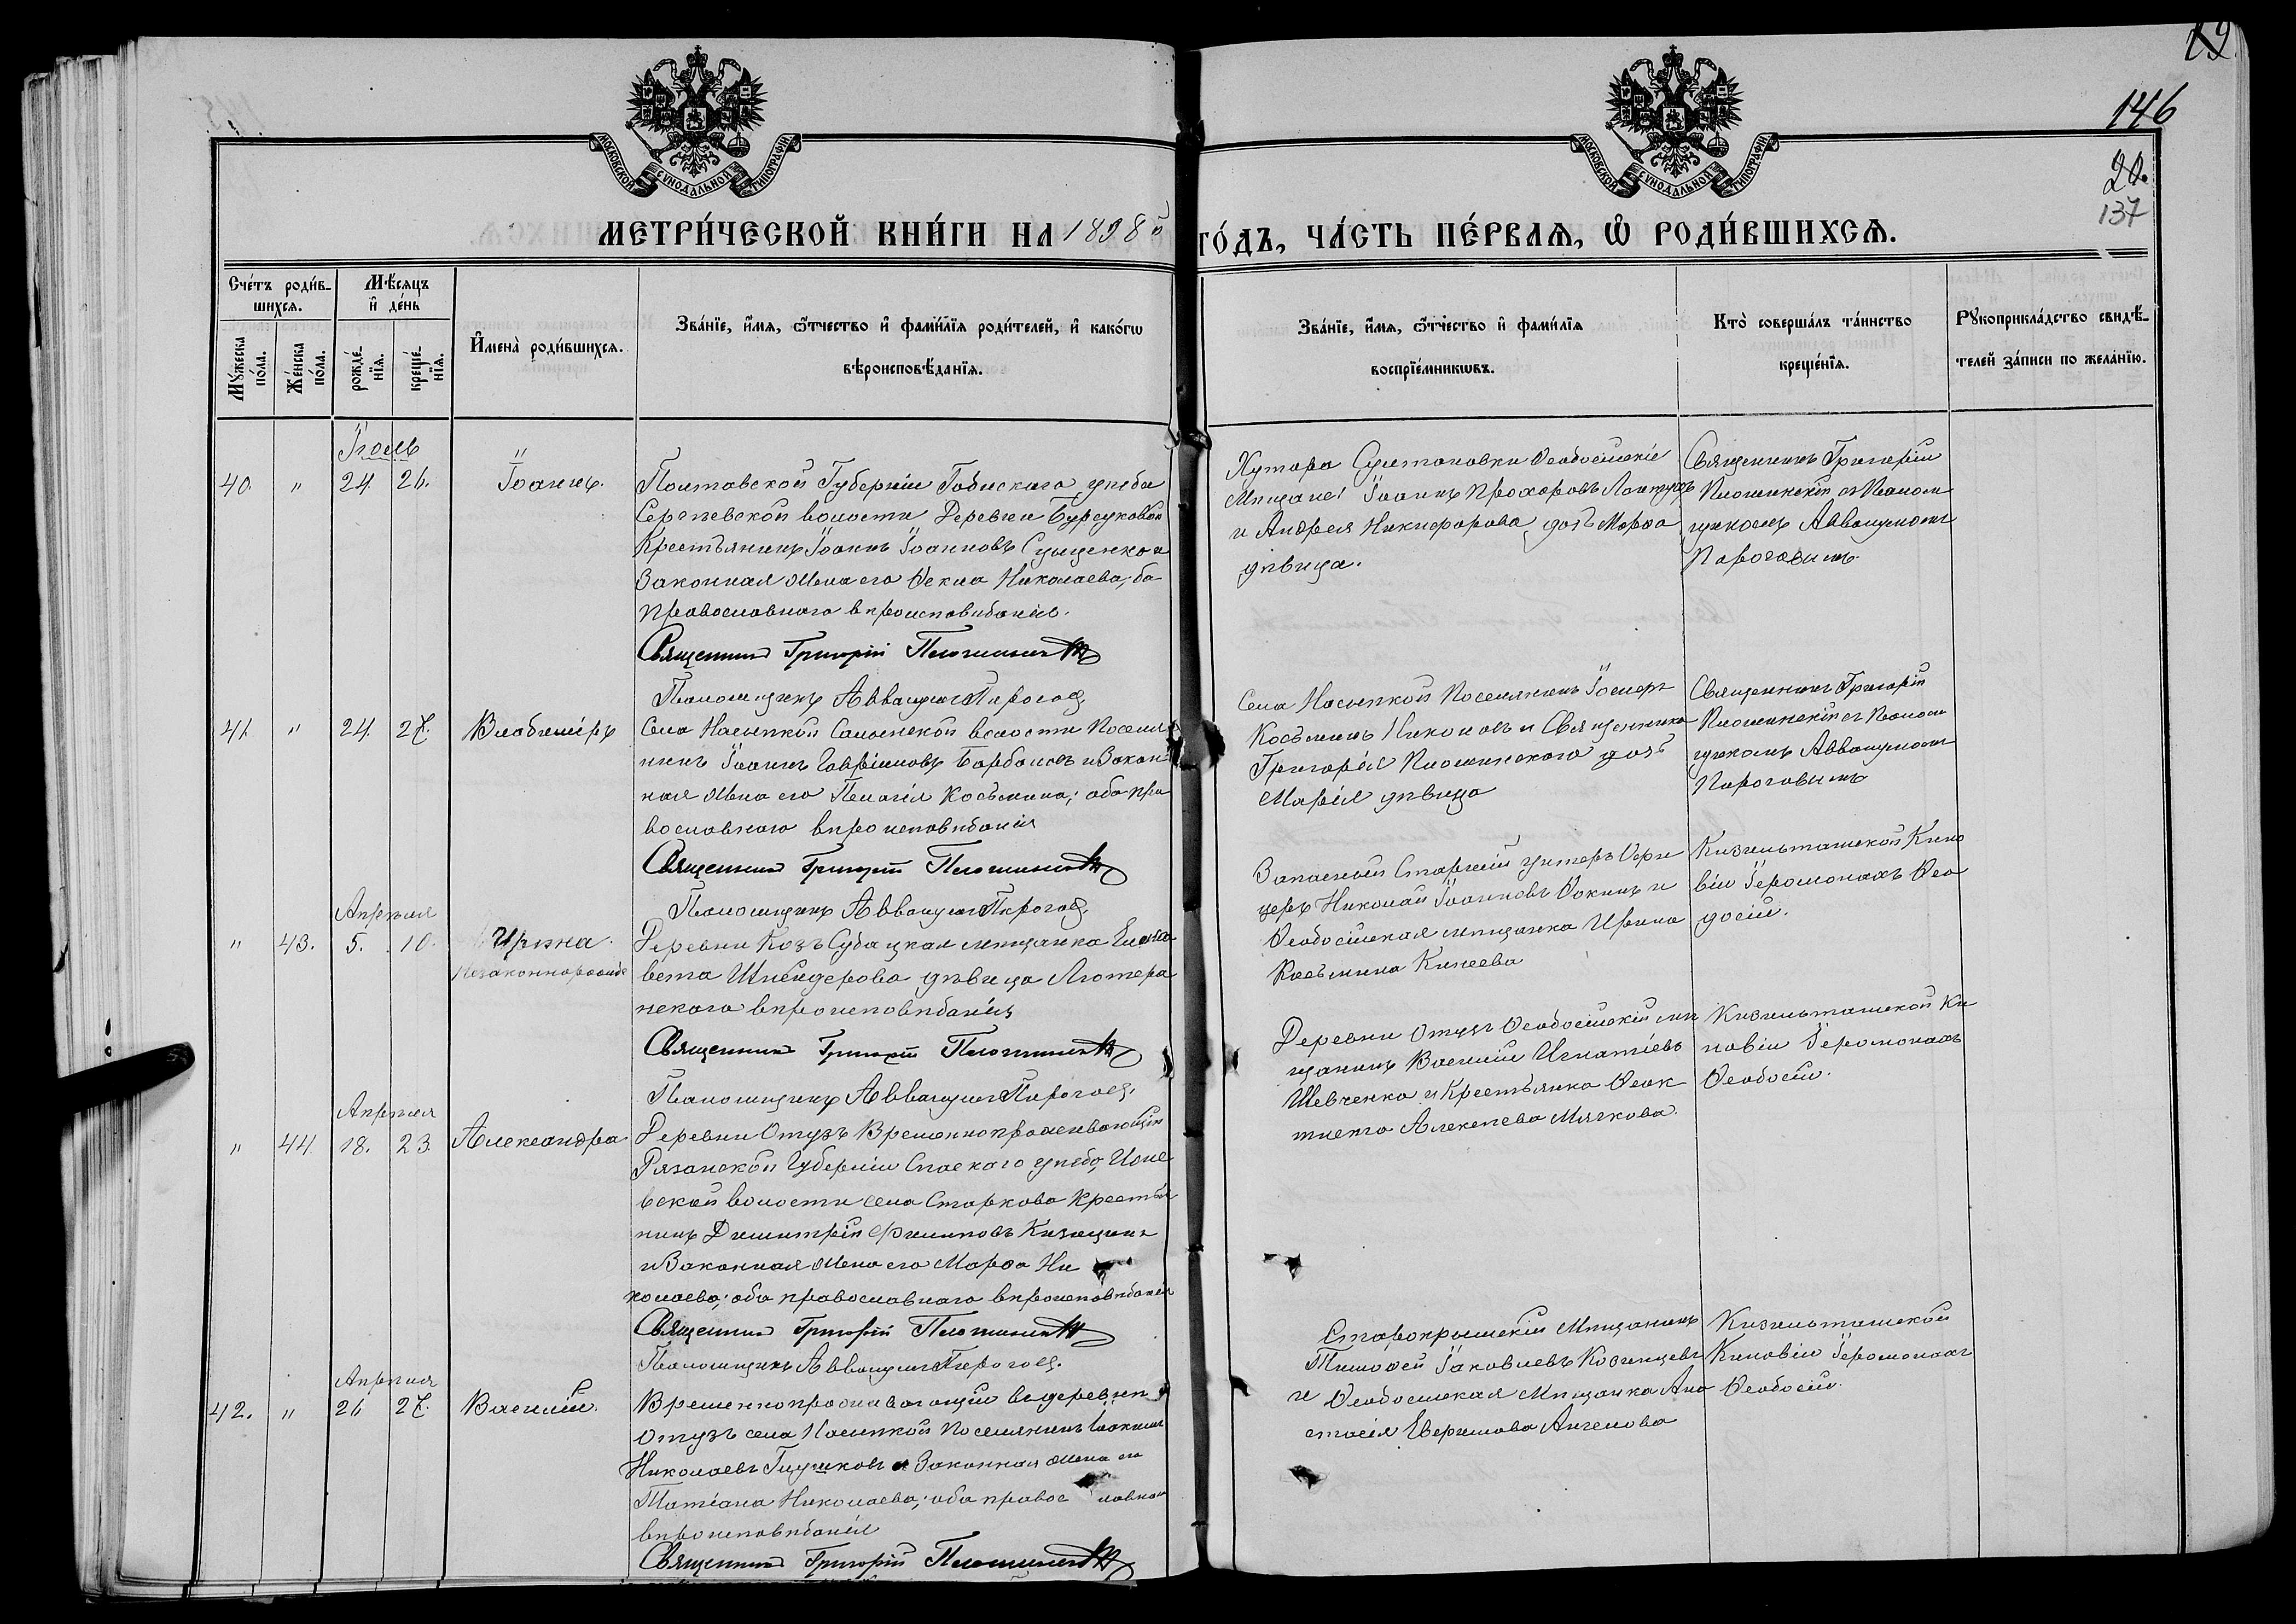 19
146
20.
137
МОСКОВСКОЙ СѴНОДАЛЬНОЙ ТИПОГРАФІИ
МОСКОВСКОЙ СѴНОДАЛЬНОЙ ТИПОГРАФІИ
МЕТРИ́ЧЕСКОЙ КНИ́ГИ НА 1898 й
ГО́ДЪ, ЧА́СТЬ ПЕ́РВАѦ, Ѡ҆ РОДИ́ВШИХСѦ.
Сче́тъ роди́в-
шихсѧ.
Мꙋ́жеска по́ла.
Же́нска по́ла.
Мѣ́сяцъ
и҆ де́нь
рожде́-нїѧ.
креще́-нїѧ.
И҆мена̀ роди́вшихсѧ.
Зва́нїе, и҆́мѧ, ѻ҆́тчество и҆ фами́лїѧ роди́телей, и҆ како́гѡ
вѣроисповѣ́данїѧ.
Зва́нїе, и҆́мѧ, ѻ҆́тчество и҆ фами́лїѧ
воспрїе́мникѡвъ.
Кто̀ соверша́лъ та́инство
креще́нїѧ.
Рꙋкоприкла́дство свидѣ́-
телей за́писи по жела́нїю.
Іюль
40. " 24. 26. Іоаннъ.
Полтавской Губерніи Гадяскаго уѣзда
волости Деревни Бурсуковой
Крестьянинъ Іоаннъ Іоанновъ и
Законная жена его Ѳекла Николаева, оба
Православнаго вѣроисповѣданія.
Священникъ Григорій
Псаломщикъ Аввакумъ Пирогов
Хутора Султановки Ѳеодосійскіе
Мѣщане: Іоаннъ Прохоровъ
и Андрея Никифорова дочь Марѳа
дѣвица.
Священникъ Григорій
съ Псалом
щикомъ Аввакумомъ
41. " 24. 27. Владиміръ
Села Насыпкой Салынской волости Поселя
нинъ Іоаннъ Гавріиловъ и Закон
ная жена его Пелагія Косьмина; оба пра
вославнаго вѣроисповѣданія
Священникъ Григорій
Псаломщикъ Аввакумъ Пирогов
Села Насыпкой Поселянинъ Іосифъ
Косьминъ Никоновъ и Священника
Григорія дочь
Марія дѣвица
Священникъ Григорій
съ Псалом
щикомъ Аввакумомъ
Апрѣля
" 43. 5. 10. Ирина.
незаконнорожд
Деревни Козъ Судацкая мѣщанка Елиза
вета дѣвица Лютера
нскаго вѣроисповѣданія
Священникъ Григорій
Псаломщикъ Аввакумъ Пирогов
Запасный Старшій унтеръ Офи
церъ Николай Іоанновъ Ѳокинъ и
Ѳеодосійская мѣщанка Ирина
Косьмина
Кизильташской Кино
віи Іеромонахъ Ѳео
досій.
Апрѣля
" 44. 18. 23. Александра
Деревни Отузъ Временнопроживающій
Рязанской Губерніи Спаскаго уѣзда,
волости села Старкова Крестья
нинъ Димитрій Филиповъ
и Законная жена его Марѳа Ни
колаева; оба православнаго вѣроисповѣданія
Священникъ Григорій
Псаломщикъ Аввакумъ Пирогов
Деревни Отузъ Ѳеодосійскій мѣ
щанинъ Василій Игнатіевъ
Шевченко и Крестьянка Ѳеок
тиста Алексѣева Мячкова.
Кизильташской Ки
новіи Іеромонахъ
Ѳеодосій.
Апрѣля
42. " 26 27. Василій.
Временнопроживающій въ деревнѣ
Отузъ села Насыпкой Поселянинъ Іоакимъ
Николаевъ Глушковъ и Законная жена его
Татіана Николаева; оба православнаго
вѣроисповѣданія
Священникъ Григорій
Старокрымскій Мѣщанинъ
Тимоѳей Іаковлевъ Козинцевъ
и Ѳеодосійская Мѣщанка Ана
стасія Ангелова
Кизильташской
Киновіи Іеромонахъ
Ѳеодосій.